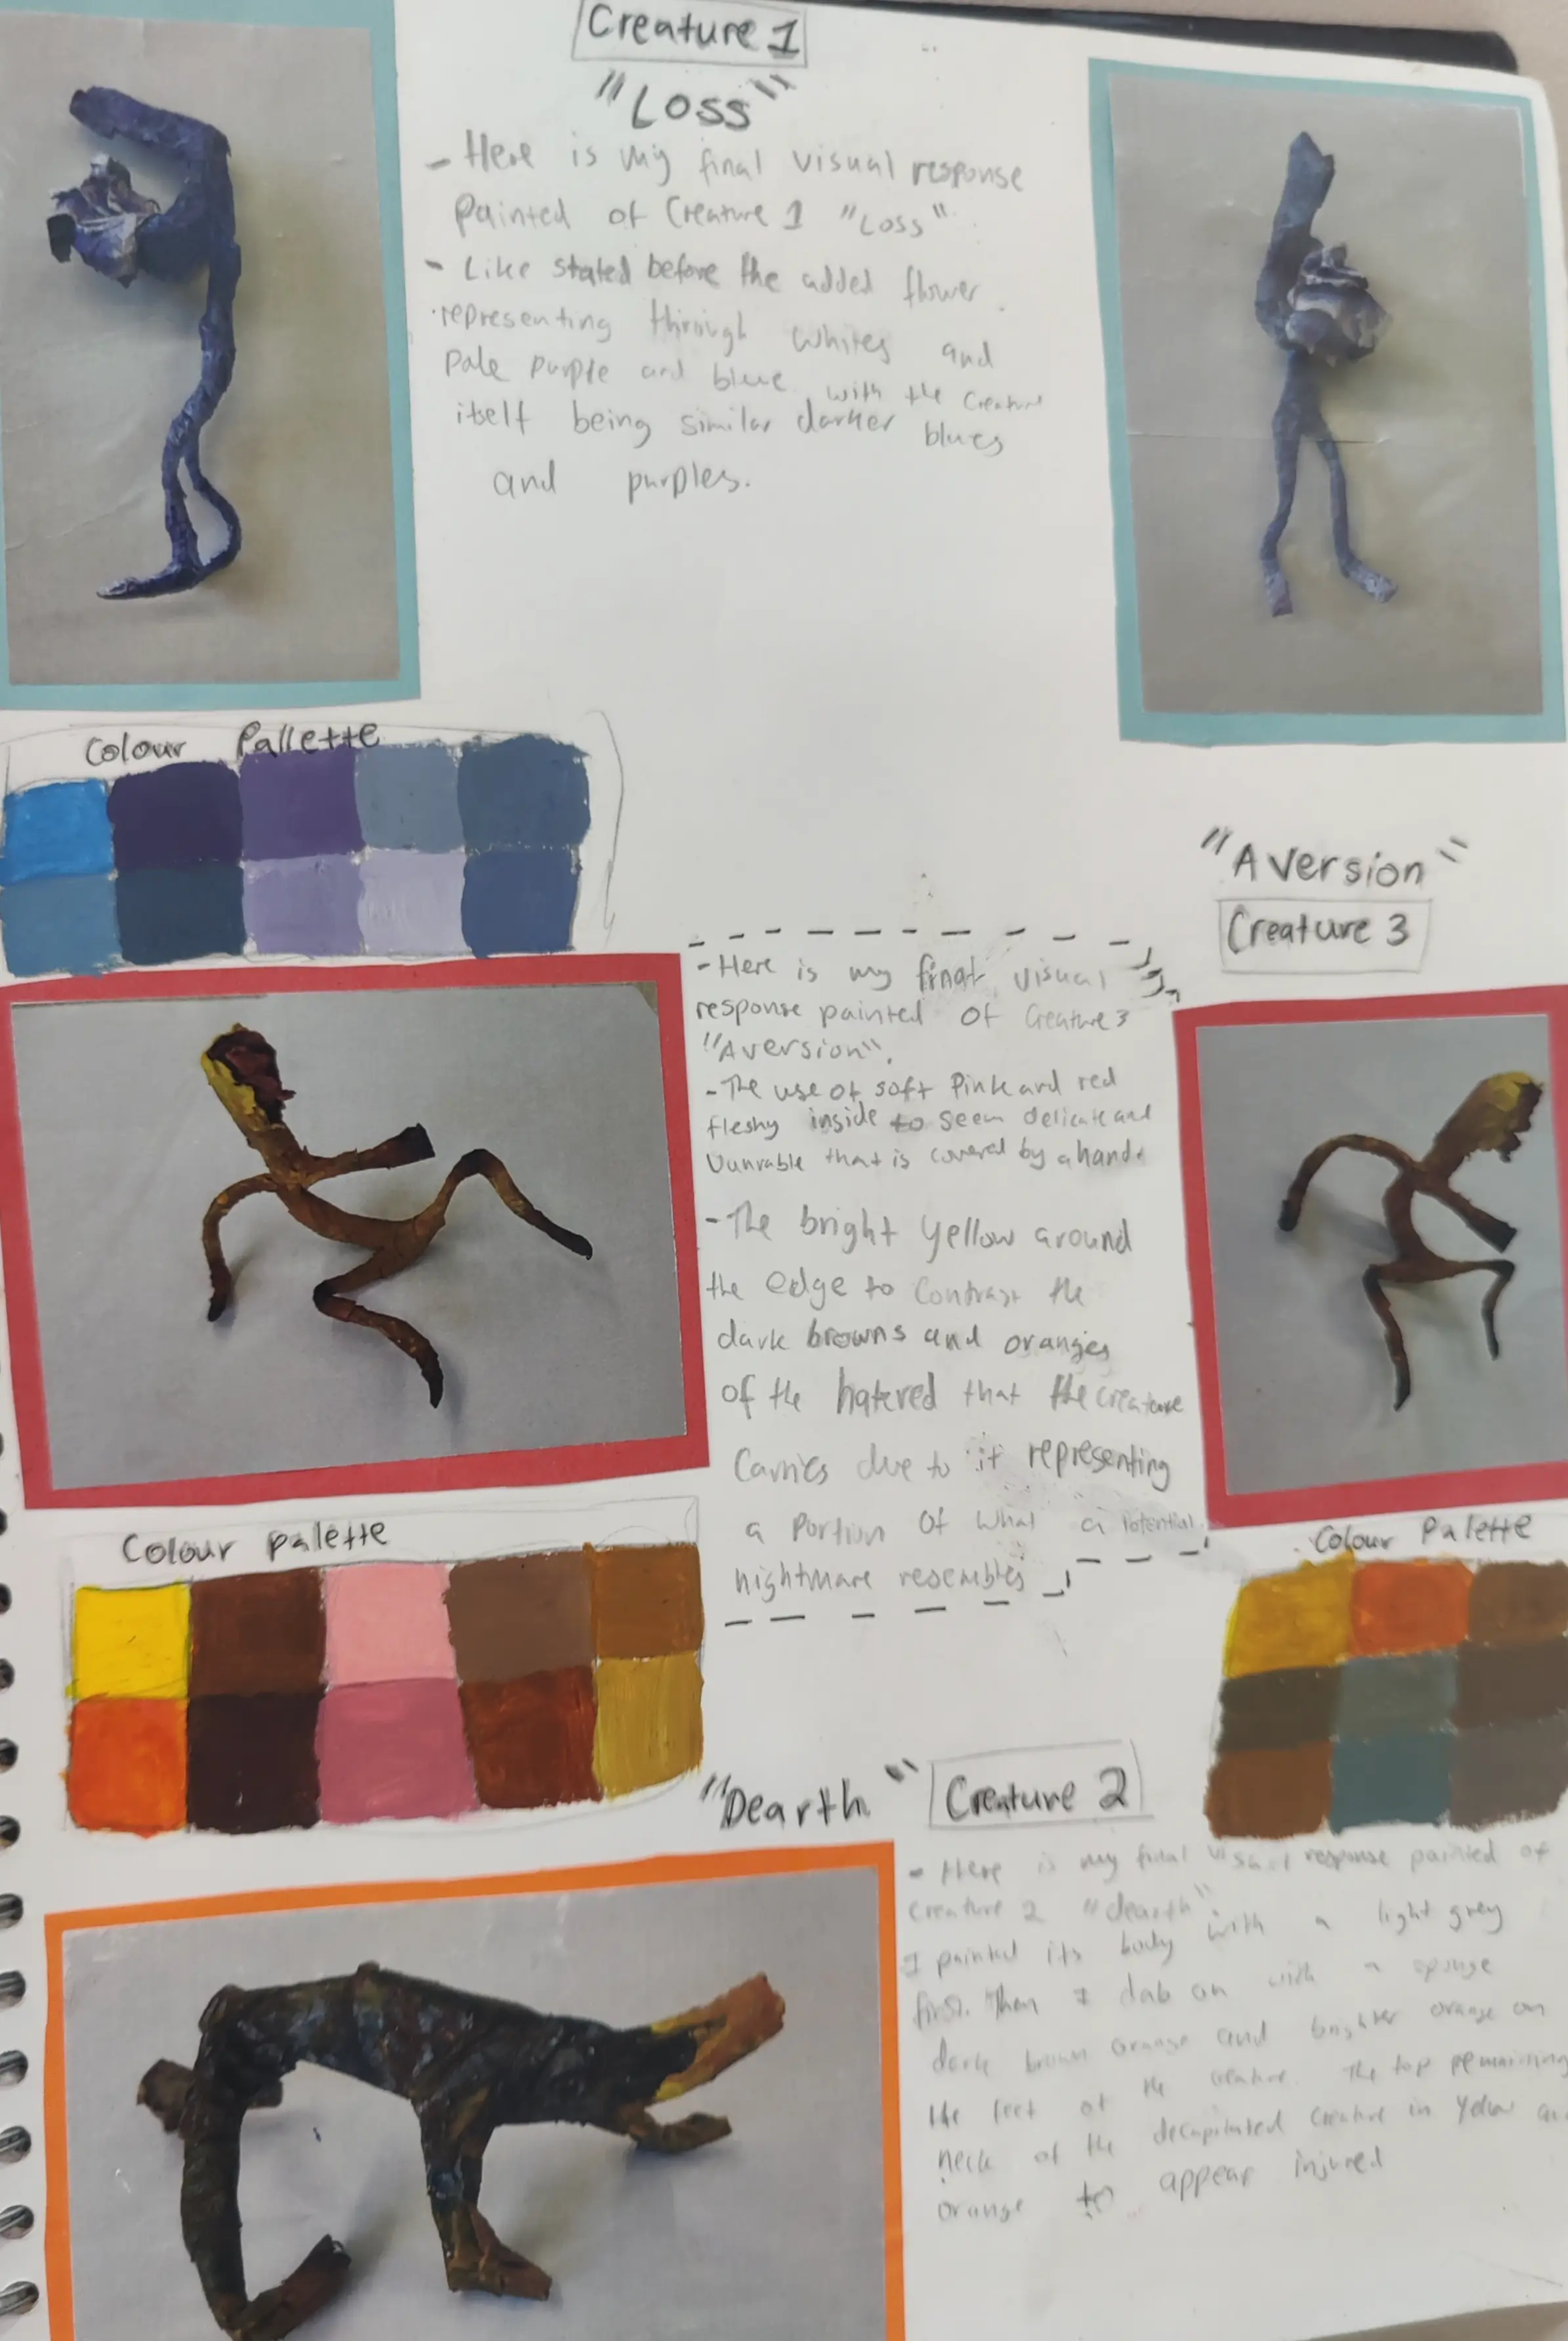 Creature 1
"Loss"
- Here is my final visual response
painted of Creature 1 "Loss".
- Like stated before the added flower
representing through whites and
pale purple and blue with the creature
itself being similar darker blues
and purples.
Colour Pallette
"Aversion"
Creature 3
- Here is my final visual
response painted of Creature 3
"Aversion".
- The use of soft Pink and red
fleshy inside to seem delicate and
Vunrable that is covered by a hand.
- The bright yellow around
the edge to contrast the
dark browns and oranges
of the hatered that the creature
Carries due to it representing
a portion of what a potential
nightmare resembles
Colour palette
Colour Palette
"Dearth"
Creature 2
- Here is my final visual response painted of
creature 2 "dearth".
I painted its body with a light grey
first. Then I dab on with a sponge
dark brown orange and brighter orange on
the feet of the creature. The top remaining
neck of the decapitated creature in yellow and
orange to appear injured